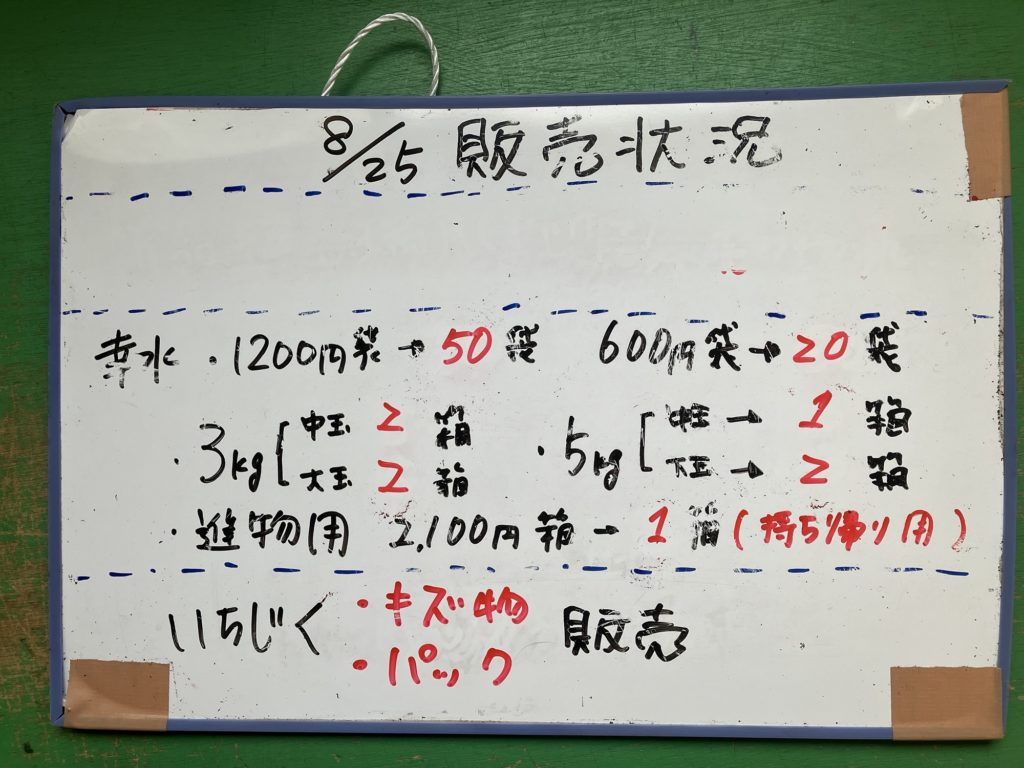 8/25 販売状況
幸水 ・1200円袋→50袋 600円袋→20袋
・3kg[中玉 2 箱 ・5kg[中玉→ 1 箱
大玉 2 箱 大玉→ 2 箱
・進物用 2,100円箱→ 1 箱(持ち帰り用)
いちじく ・キズ物 販売
・パック